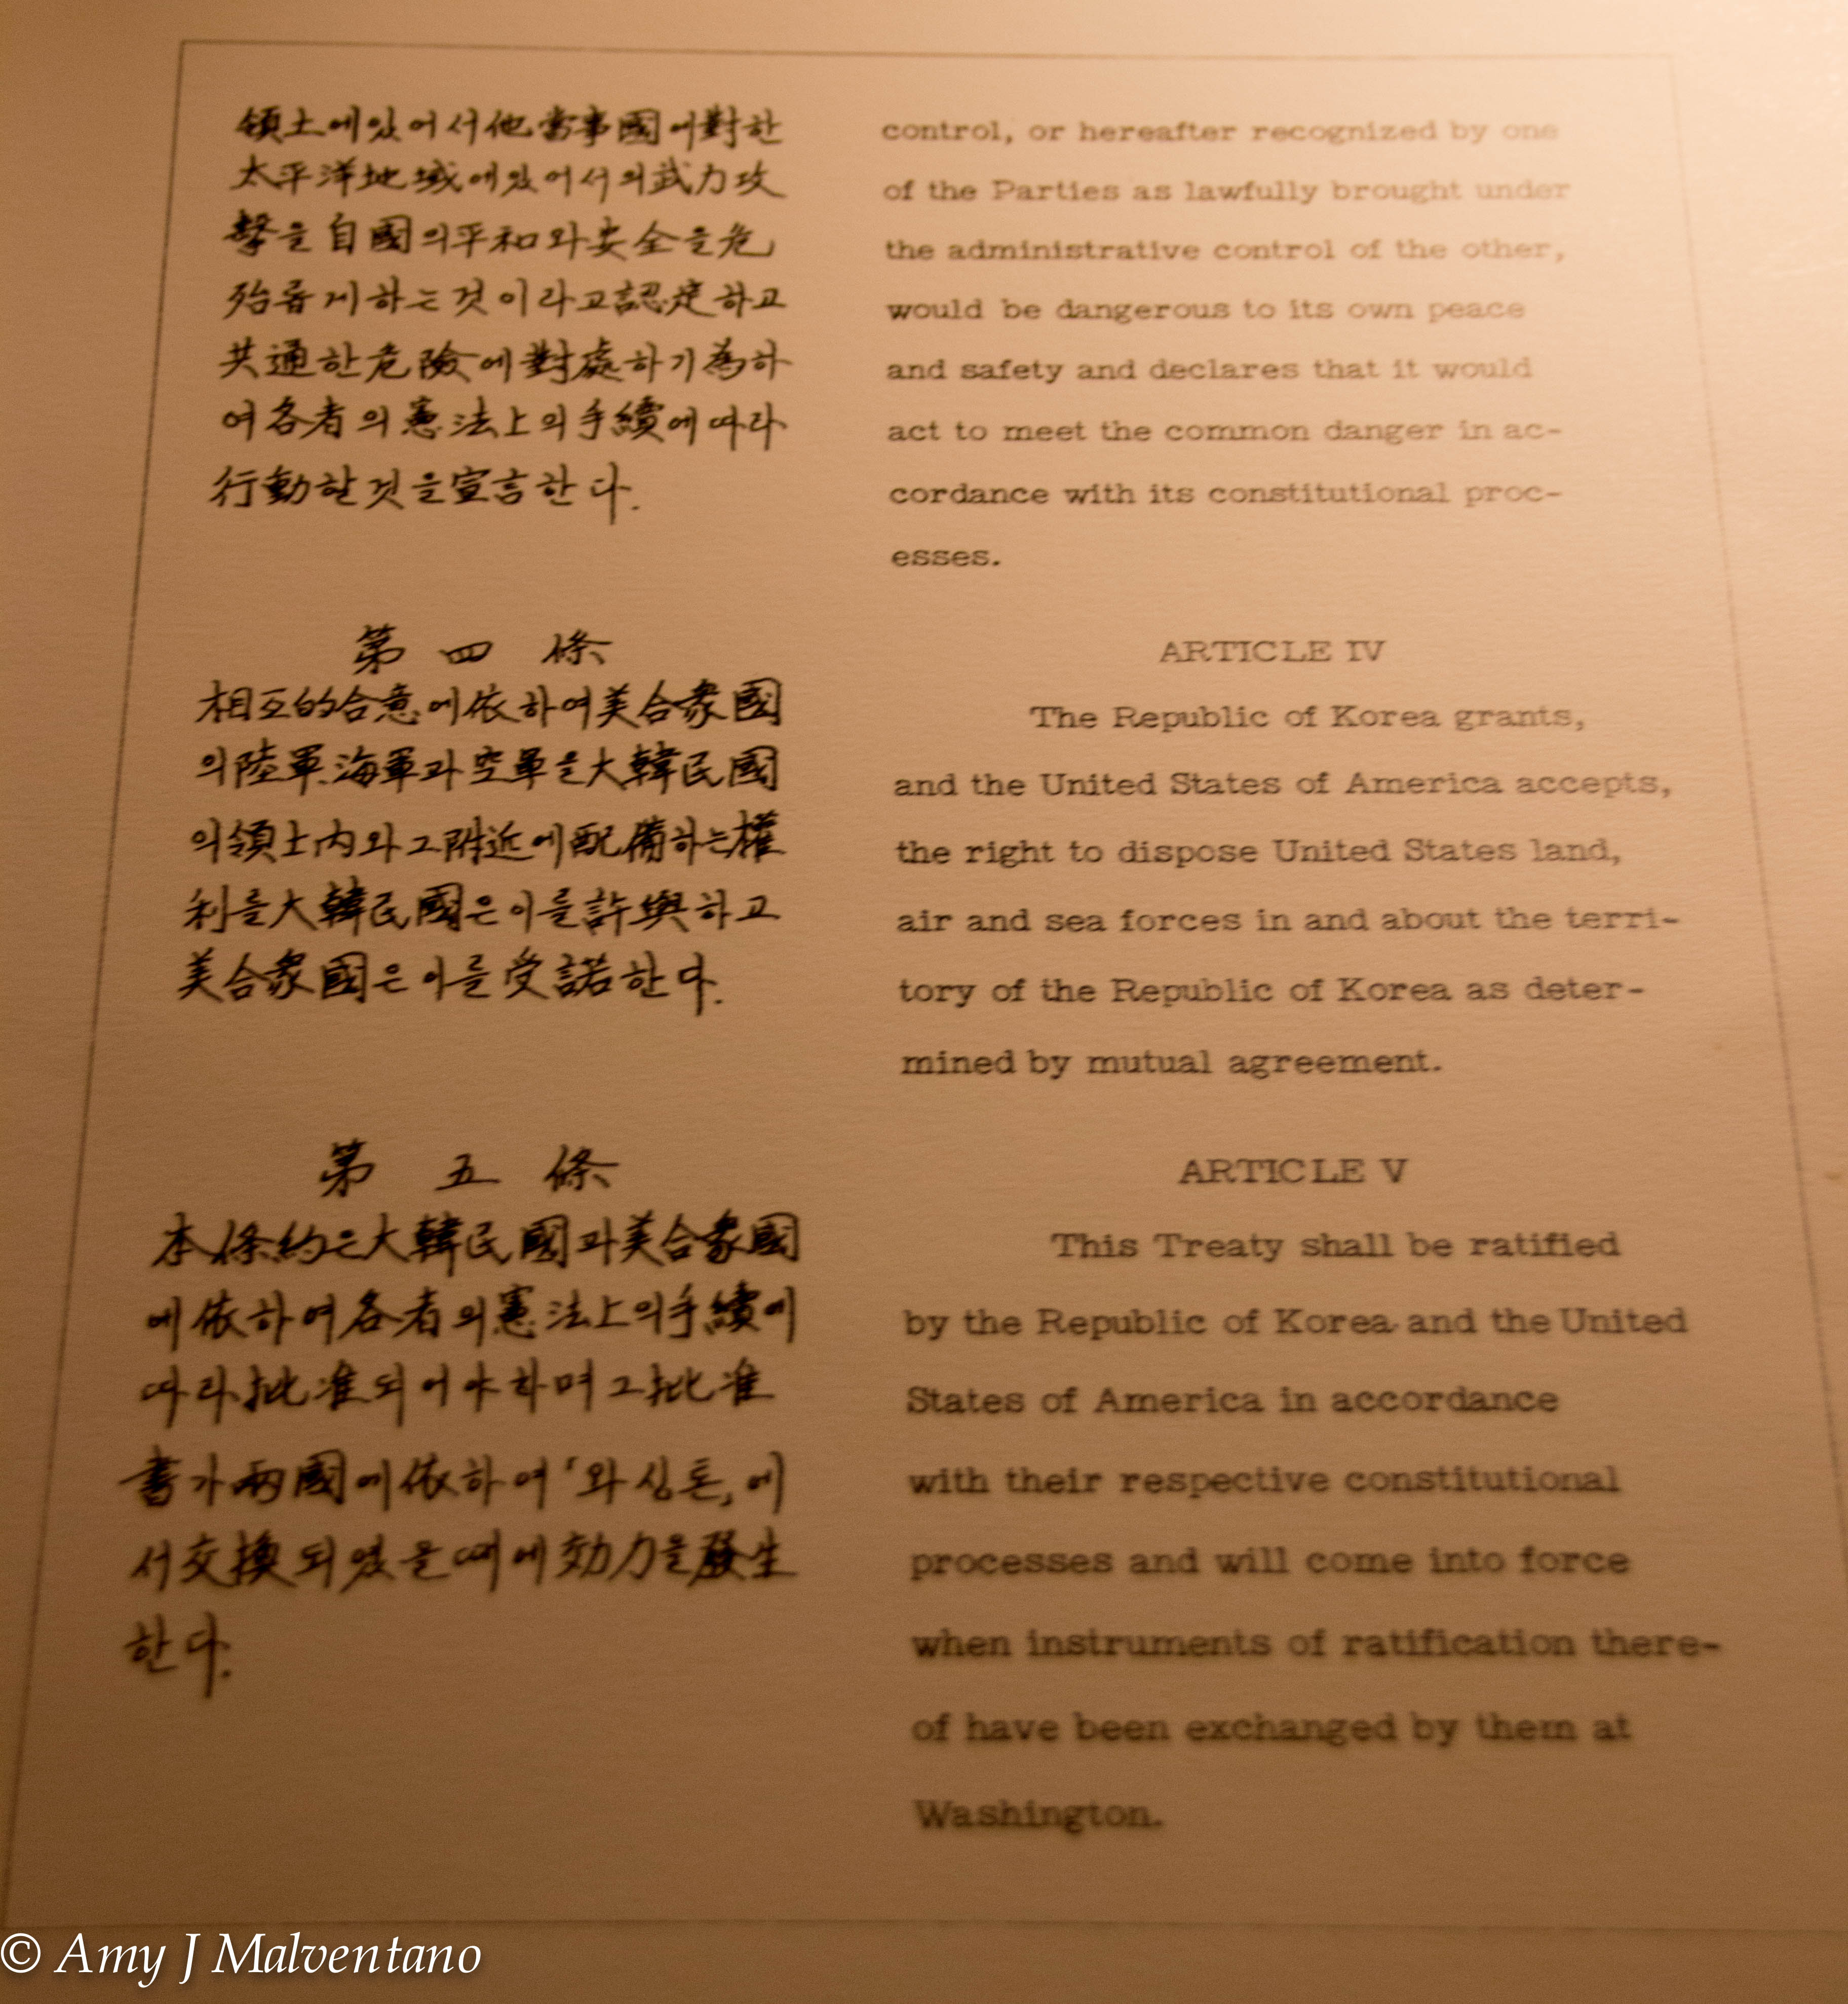 領土에있어서他當事國에對한
太平洋地域에있어서의武力攻
擊을自國의平和와安全을危
殆롭게하는것이라고認定하고
共通한危險에對處하기爲하
여各者의憲法上의手續에따라
行動할것을宣言한다.
第四條
相互的合意에依하여美合衆國
의陸軍.海軍과空軍을大韓民國
의領土內와그附近에配備하는權
利를大韓民國은이를許與하고
美合衆國은이를受諾한다.
第五條
本條約은大韓民國과美合衆國
에依하여各者의憲法上의手續에
따라批准되어야하며그批准
書가兩國에依하여「와싱톤」에
서交換되였을때에効力을發生
한다.
control, or hereafter recognized by one
of the Parties as lawfully brought under
the administrative control of the other,
would be dangerous to its own peace
and safety and declares that it would
act to meet the common danger in ac-
cordance with its constitutional proc-
esses.
ARTICLE IV
The Republic of Korea grants,
and the United States of America accepts,
the right to dispose United States land,
air and sea forces in and about the terri-
tory of the Republic of Korea as deter-
mined by mutual agreement.
ARTICLE V
This Treaty shall be ratified
by the Republic of Korea and the United
States of America in accordance
with their respective constitutional
processes and will come into force
when instruments of ratification there-
of have been exchanged by them at
Washington.
© Amy J Malventano